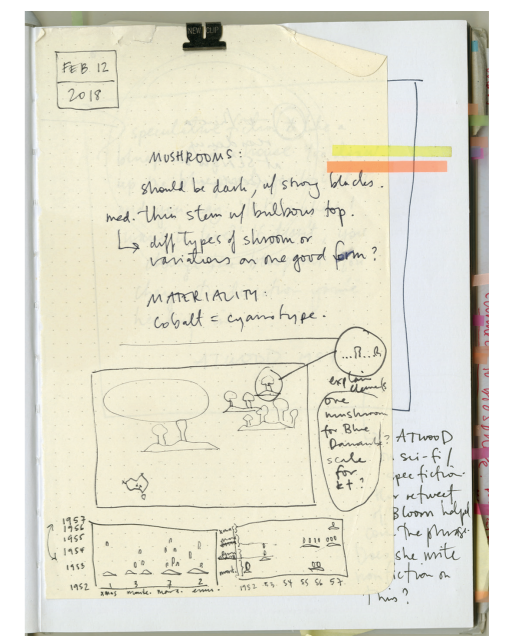 NEW CLIP
FEB 12
2018
MUSHROOMS:
should be dark, w/ strong blacks.
med. thin stem w/ bulbous top.
↳ diff types of shroom or
variations on one good form?
MATERIALITY:
cobalt = cyanotype.
...B..
explain
elements
one
mushroom
for Blue
Danube?
scale
for
kt?
ATWOOD
sci-fi/
spec fiction
r retweet
Bloom helped
the phrase
she write
fiction on
this?
1957
1956
1955
1954
1953
1952
1 3 7 2
1952 53 54 55 56 57